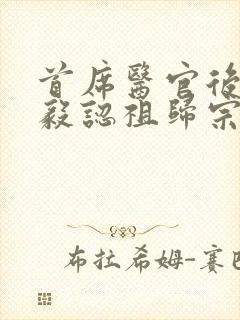 首席醫官後
毅認祖歸宗
布拉希姆-賽巴